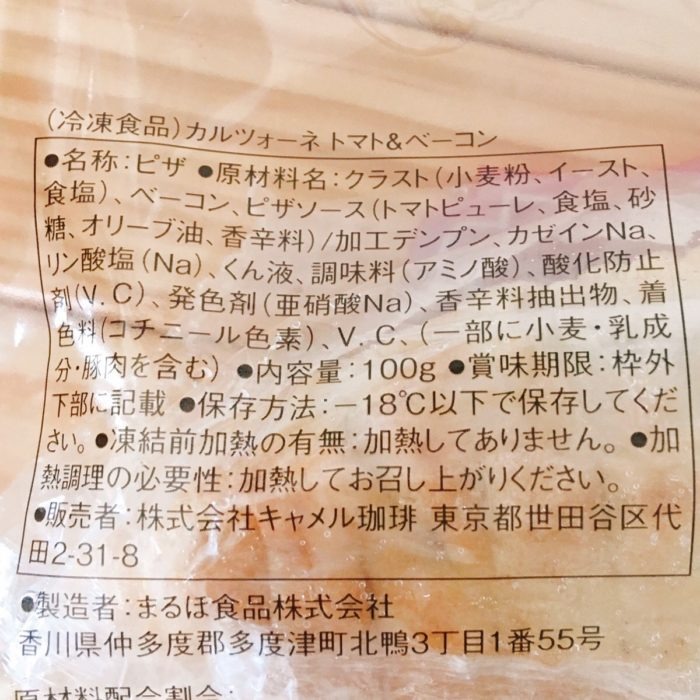 (冷凍食品)カルツォーネ トマト&ベーコン
●名称:ピザ ●原材料名:クラスト(小麦粉、イースト、
食塩)、ベーコン、ピザソース(トマトピューレ、食塩、砂
糖、オリーブ油、香辛料)/加工デンプン、カゼインNa、
リン酸塩(Na)、くん液、調味料(アミノ酸)、酸化防止
剤(V.C)、発色剤(亜硝酸Na)、香辛料抽出物、着
色料(コチニール色素)、V.C、(一部に小麦・乳成
分・豚肉を含む) ●内容量:100g ●賞味期限:枠外
下部に記載 ●保存方法:−18℃以下で保存してくだ
さい。●凍結前加熱の有無:加熱してありません。●加
熱調理の必要性:加熱してお召し上がりください。
●販売者:株式会社キャメル珈琲 東京都世田谷区代
田2-31-8
●製造者:まるほ食品株式会社
香川県仲多度郡多度津町北鴨3丁目1番55号
原材料配合割合: